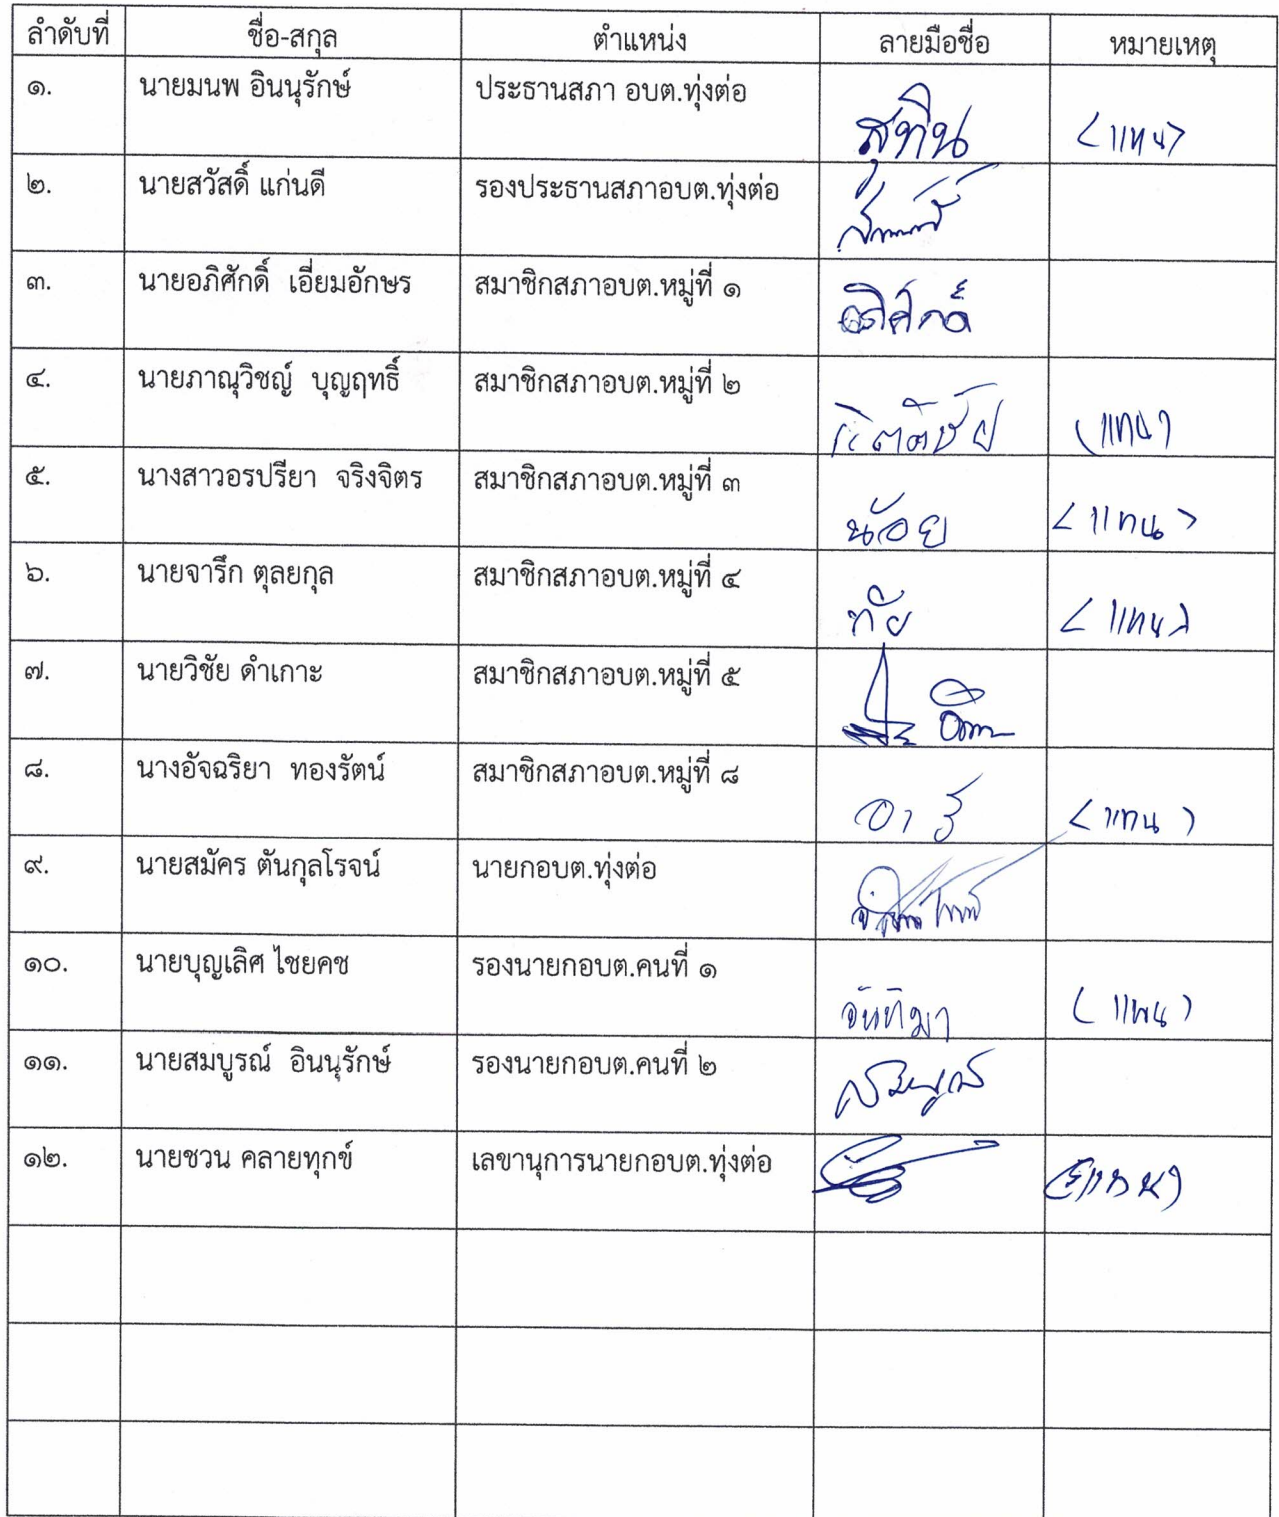 ลำดับที่ ชื่อ-สกุล ตำแหน่ง ลายมือชื่อ หมายเหตุ
๑. นายมนพ อินนุรักษ์ ประธานสภา อบต.ทุ่งต่อ สุทิน (แทน)
๒. นายสวัสดิ์ แก่นดี รองประธานสภาอบต.ทุ่งต่อ
๓. นายอภิศักดิ์ เอี่ยมอักษร สมาชิกสภาอบต.หมู่ที่ ๑ อภิศักดิ์
๔. นายภาณุวิชญ์ บุญฤทธิ์ สมาชิกสภาอบต.หมู่ที่ ๒ (แทน)
๕. นางสาวอรปรียา จริงจิตร สมาชิกสภาอบต.หมู่ที่ ๓ น้อย (แทน)
๖. นายจารึก ตุลยกุล สมาชิกสภาอบต.หมู่ที่ ๔ (แทน)
๗. นายวิชัย ดำเกาะ สมาชิกสภาอบต.หมู่ที่ ๕
๘. นางอัจฉริยา ทองรัตน์ สมาชิกสภาอบต.หมู่ที่ ๘ อารี (แทน)
๙. นายสมัคร ตันกุลโรจน์ นายกอบต.ทุ่งต่อ
๑๐. นายบุญเลิศ ไชยคช รองนายกอบต.คนที่ ๑ จันทิมา (แทน)
๑๑. นายสมบูรณ์ อินนุรักษ์ รองนายกอบต.คนที่ ๒ สมบูรณ์
๑๒. นายชวน คลายทุกข์ เลขานุการนายกอบต.ทุ่งต่อ (แทน)